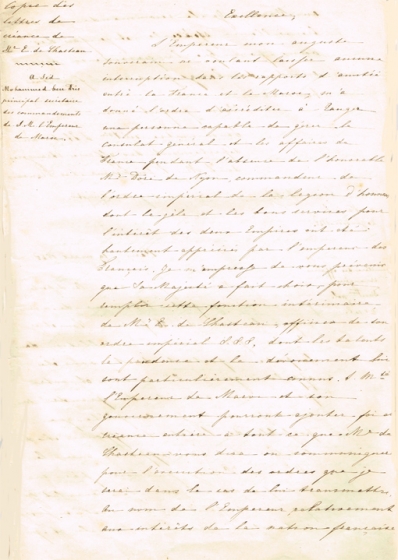 Copie des
lettres de
créance de
Mr E. de Chasteau
A Sid
Mohammed ben Dris
principal secrétaire
des commandements
de S. M. l'Empereur
de Maroc.
Excellence,
L'Empereur mon auguste
souverain ne voulant laisser aucune
interruption dans les rapports d'amitié
entre la France et le Maroc, m'a
donné l'ordre d'accréditer à Tanger
une personne capable de gérer le
consulat général et les affaires de
France pendant l'absence de l'honorable
Mr commandeur de
l'ordre impérial de la légion d'honneur
dont le zèle et les bons services pour
l'intérêt des deux Empires ont été
hautement appréciés par l'empereur des
Français. Je m'empresse de vous prévenir
que Sa Majesté a fait choix, pour
remplir cette fonction intérimaire
de Mr E. de Chasteau, officier de son
ordre impérial dont les talents
la prudence et le discernement lui
sont particulièrement connus. S. Mté
l'Empereur de Maroc et son
gouvernement pourront ajouter foi et
créance entière à tout ce que Mr de
Chasteau vous dira ou communiquera
pour l'exécution des ordres que je
serai dans le cas de lui transmettre
au nom de l'Empereur, relativement
aux intérêts de la nation française